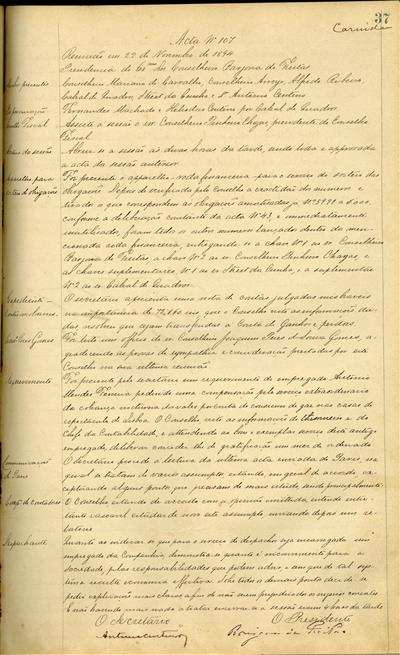 37
Acta Nº 107
Reunião em 22 de Novembro de 1894
Presidencia do Exmo Snr Conselheiro Barjona de Freitas
Conselheiro Marianno de Carvalho, Conselheiro Arroyo, Alfredo Ribeiro,
Cabral de Quadros, Street da Cunha e Antonio Centeno
Fernandes Machado e Heliodoro Centeno por Cabral de Quadros
Conselho Fiscal
Assiste á sessão o snr. Conselheiro Pinheiro Chagas, presidente do Conselho
Fiscal
Abriu-se a sessão ás duas horas da tarde, sendo lida e approvada
a acta da sessão anterior
Foi presente o apparelho roda financeira para o serviço do sorteio das
obrigações. Depois de verificada pelo Conselho a exactidão dos numeros e
tirados os que correspondem ás obrigações amortisadas
conforme a deliberação constante da acta Nº 43, e immediatamente
inutilisados, foram todos os outros numeros lançados dentro da men-
cionada roda financeira, entregando-se a chave Nº 1 ao sr. Conselheiro
Barjona de Freitas, a chave Nº 2 ao sr. Conselheiro Pinheiro Chagas, e
as chaves suplementares, Nº 1 ao sr. Street da Cunha, e a suplementar
Nº 2 ao sr. Cabral de Quadros.
Expediente
O secretario apresenta uma nota de contas julgadas incobraveis
na importancia de que o Conselho vista as informações da-
das resolveu que sejam transferidas á Conta de Ganhos e perdas.
Foi lido um officio do sr. Conselheiro Joaquim Pires de Sousa Gomes, a-
gradecendo as provas de sympathia e consideração prestadas por este
Conselho na sua ultima reunião
Requerimento
Foi presente pelo secretario um requerimento do empregado Antonio
Mendes Ferreira pedindo uma compensação pelo serviço extraordinario
da cobrança nocturna do consumo de gaz nas casas de
espectaculo de Lisboa. O Conselho, vistas as informações do e do
Chefe da Contabilidade, e attendendo ao bom e exemplar serviço deste antigo
empregado, deliberou conceder-lhe de gratificação um mez de ordenado
Communicação de Paris
O Secretario procede á leitura da ultima acta enviada de Paris, na
qual se tratam de varios assumptos, estando em geral de accordo, ex-
plicando alguns pontos que precisam de mais estudo, sendo principalmente:
O Conselho, estando de accordo com a opinião emittida, entende entre-
tanto rasoavel estudar de novo este assumpto, enviando depois um re-
latorio
Despachante
Quanto ao indicar-se que para o serviço de despacho seja encarregado um
empregado da Companhia, demonstra-se quanto é inconveniente para a
sociedade, pelas responsabilidades que podem advir, e sem que de tal sys-
tema resulte economia effectiva. Sobre todos os demais pontos decide-se
pedir explicações mais claras, a fim de não serem prejudicados os negocios correntes
E não havendo mais nada a tratar encerrou-se a sessão eram 4 horas da tarde
O Secretario
O Presidente
Antonio Centeno
Barjona de Freitas